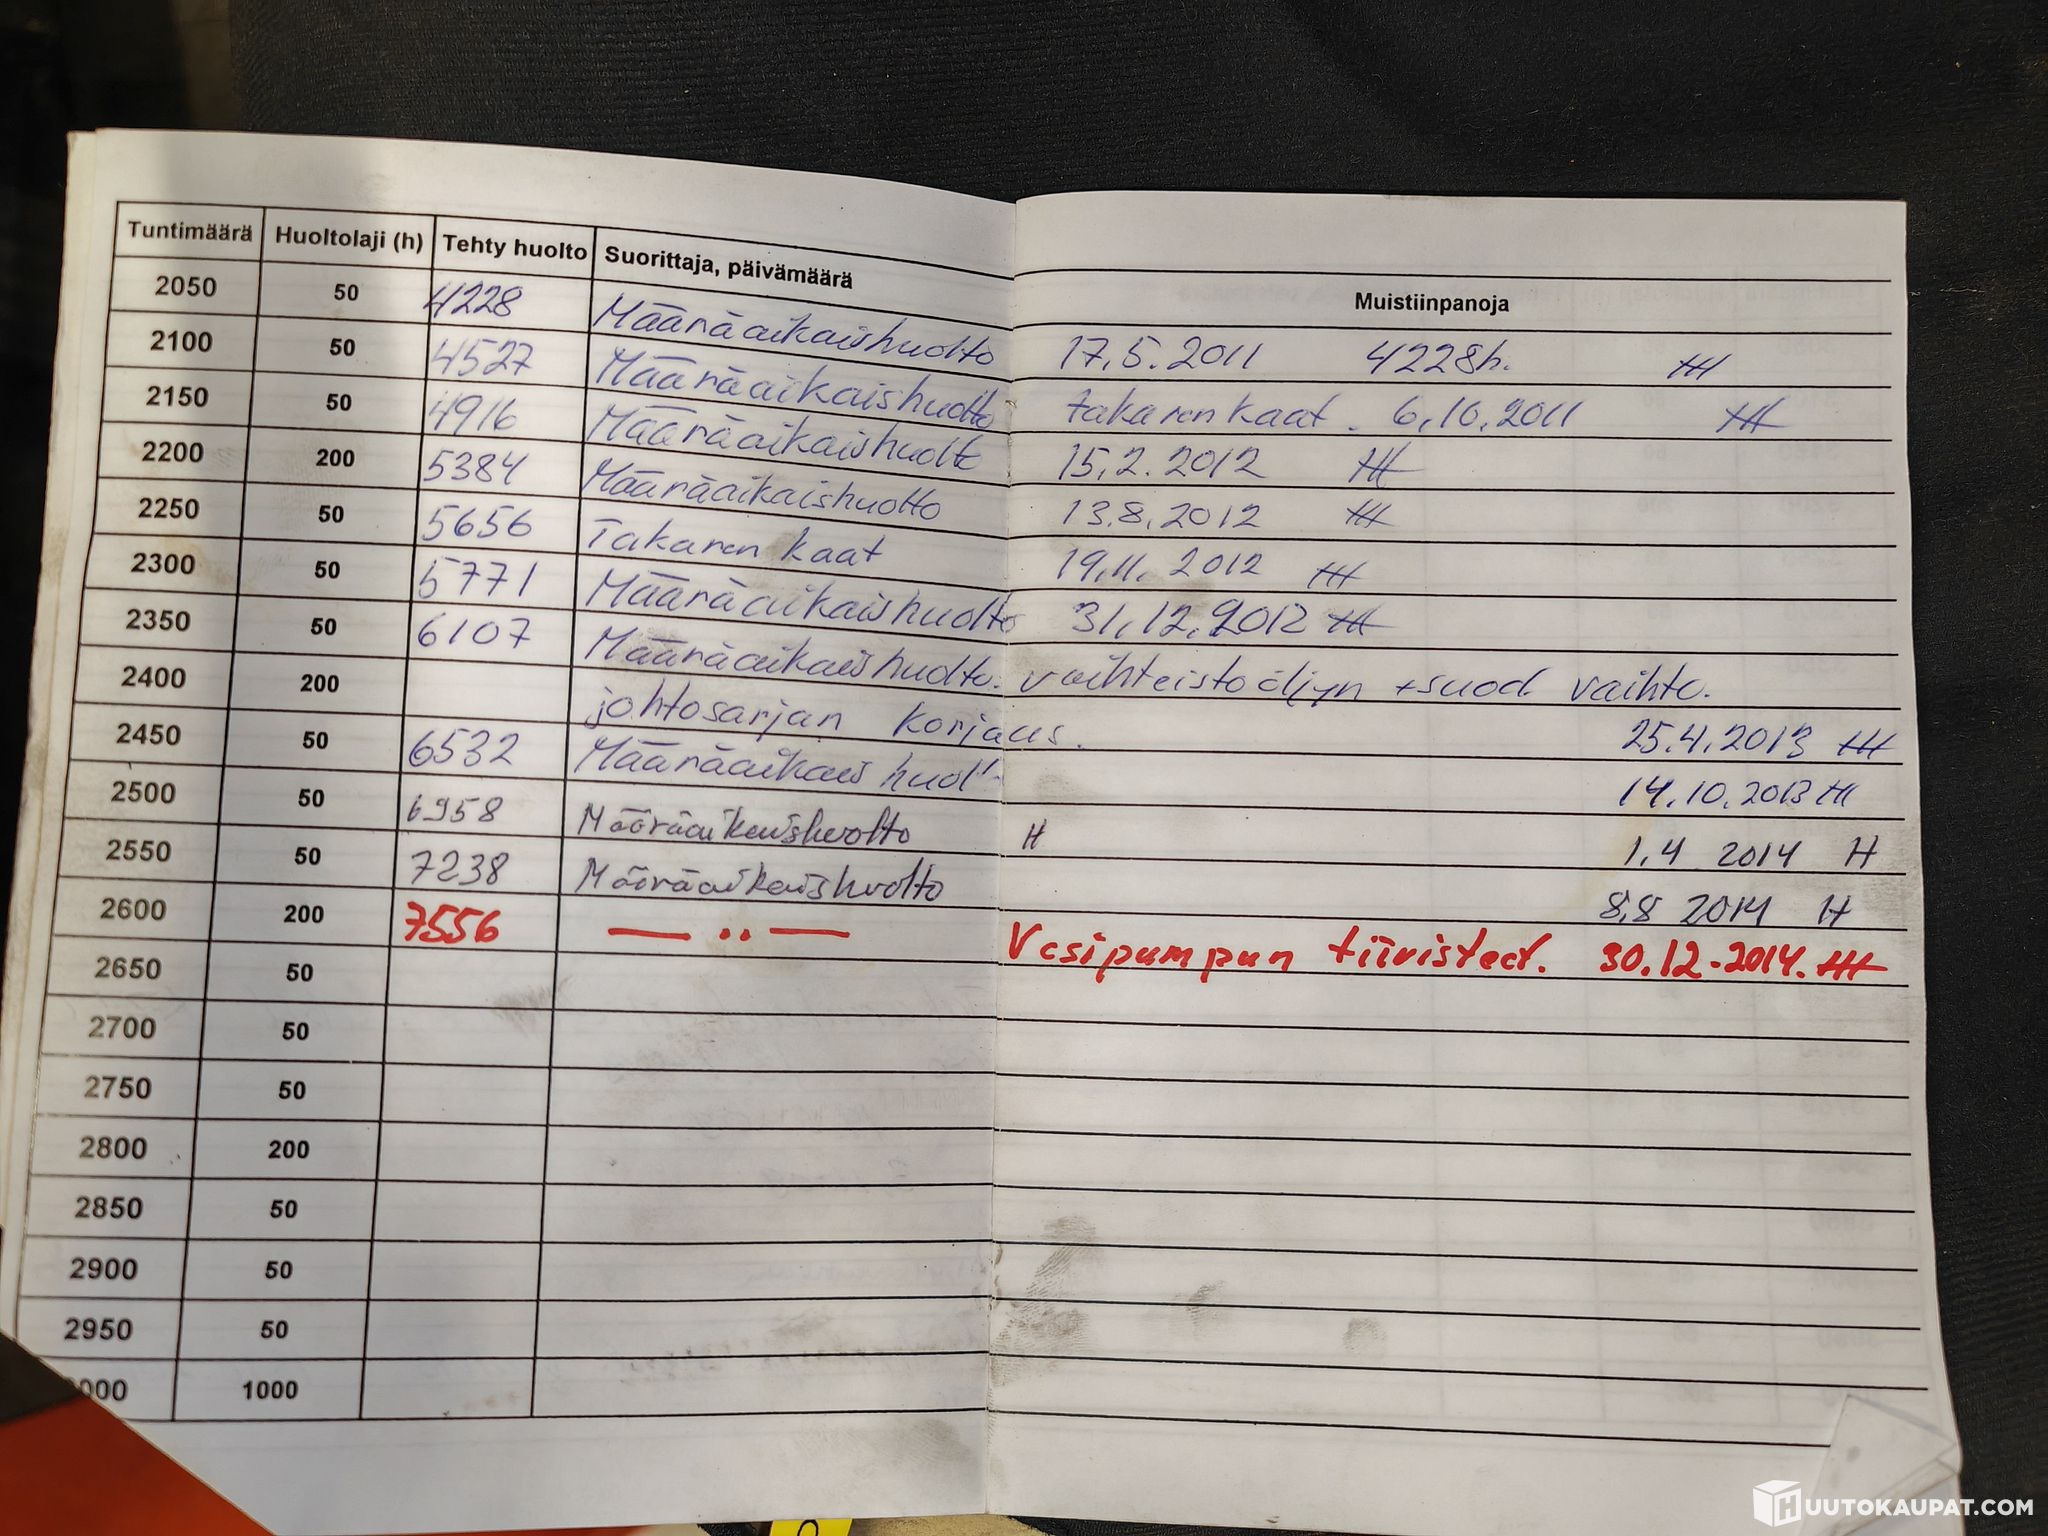 Tuntimäärä Huoltolaji (h) Tehty huolto Suorittaja, päivämäärä Muistiinpanoja
2050 50 4228 Määräaikaishuolto 17.5.2011 4228h. HH
2100 50 4527 Määräaikaishuolto takaren kaat. 6.10.2011 HH
2150 50 4916 Määräaikaishuolto 15.2.2012 HH
2200 200 5384 Määräaikaishuolto 13.8.2012 HH
2250 50 5656 Takaren kaat 19.11.2012 HH
2300 50 5771 Määräaikaishuolto 31.12.2012 HH
2350 50 6107 Määräaikaishuolto. vaihteistoöljyn + suod. vaihto.
2400 200 johtosarjan korjaus. 25.4.2013 HH
2450 50 6532 Määräaikaishuolt 14.10.2013 HH
2500 50 6958 Määräaikaishuolto H 1.4 2014 H
2550 50 7238 Määräaikaishuolto 8.8 2014 H
2600 200 7556 — .. — Vesipumpun tiivisteet. 30.12.2014. HH
2650 50
2700 50
2750 50
2800 200
2850 50
2900 50
2950 50
000 1000
HUUTOKAUPAT.COM